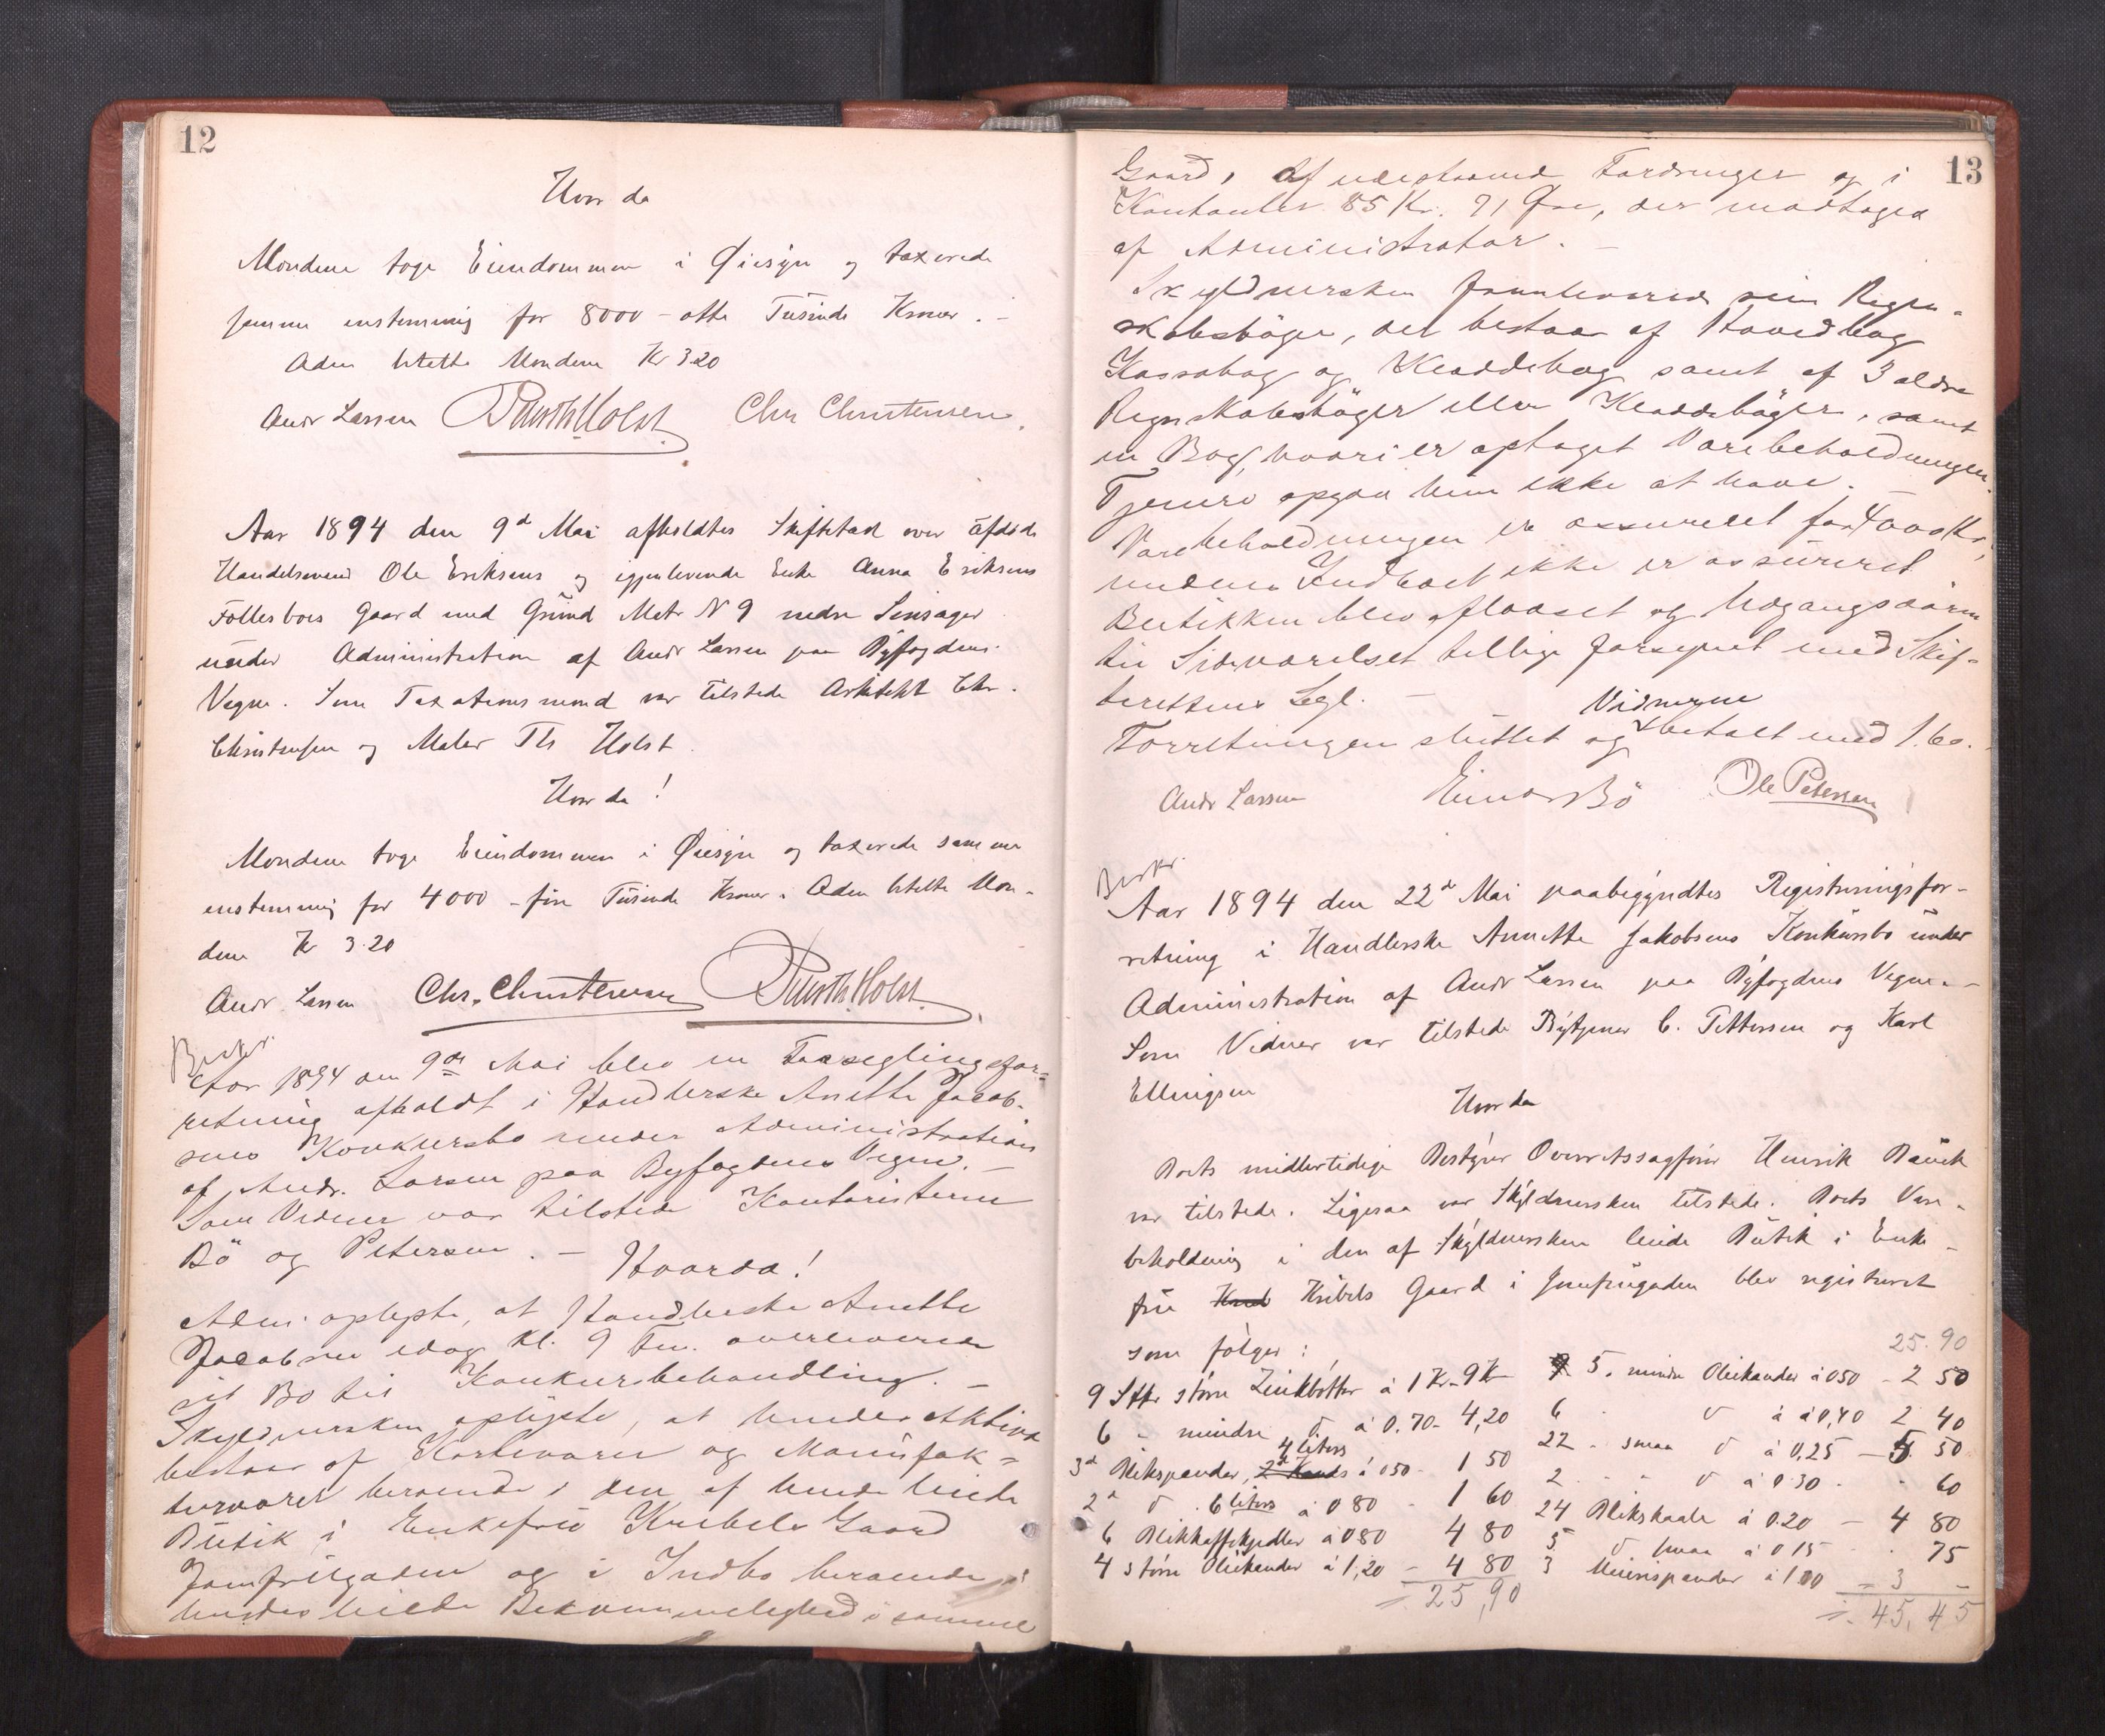 12
Hvor da
Mændene toge Eiendommen i Øiesyn og taxerede
samme enstemmig for 8000 - otte Tusinde Kroner. -
Adm betalte Mændene Kr 3.20
Andr Larsen Chr Christensen
Aar 1894 den 9d Mai afholdtes Skiftetaxt over afdøde
Handelsmand Ole Eriksens og gjenlevende Enke Anna Eriksens
Fællesboes Gaard med Grund Matr N 9 nedre
under Administration af Andr Larsen paa Byfogdens
Vegne. Som Taxationsmænd var tilstede Arkitekt Chr.
Christensen og Maler Th Holst
Hvor da!
Mændene toge Eiendommen i Øiesyn og taxerede samme
enstemmig for 4000 - fire Tusinde Kroner. Adm betalte Mæn-
dene Kr 3.20
Andr Larsen Chr. Christensen
Beskr.
Aar 1894 den 9de Mai blev en Forseglingsfor=
retning afholdt i Handlerske Anette Jacob-
sens Konkursbo under Administration
af Andr. Larsen paa Byfogdens Vegne. -
Som Vidner var tilstede Kontoristerne
Bö og Petersen. - Hvorda!
Adm. oplyste, at Handlerske Anette
Jacobsen idag Kl. 9 Fm. overleverede
sit Bo til Konkursbehandling. -
Skyldnersken oplyste, at hendes Aktiva
bestaar af Kortevarer og Manufak=
turvarer beroende i den af hende leiede
Butik i Enkefru Kribels Gaard
Jomfrugaden og i Indbo beroende i
hendes leiede Bekvemmelighed i samme
13
Gaard, af udestaaende Fordringer og i
Kontanter 85 Kr. 71 Øre, der modtoges
af Administrator. -
Skyldnersken fremleverede sine Regn-
skabsbøger, der bestaar af Hovedbog
Kassabog og Kladdebog samt af 3 ældre
Regnskabsbøger eller Kladdebøger, samt
en Bog, hvori er optaget Varebeholdningen.
Tjenere opgav hun ikke at have. -
Varebeholdningen er assureret for 4000 Kr,
medens Indboet ikke er assureret.
Butikken blev aflaaset og Udgangsdøren
til Sideværelset tillige forseglet med Skif-
terettens Segl. -
Vidnerne
Forretningen sluttet og betalt med 1.60.
Andr Larsen Einar Bö Ole Petersen
Beskr.
Aar 1894 den 22d Mai paabegyndtes Registreringsfor-
retning i Handlerske Annette Jakobsens Konkursbo under
Administration af Andr Larsen paa Byfogdens Vegne. -
Som Vidner var tilstede Bytjener C. Pettersen og Karl
Ellingsen
Hvor da
Boets midlertidige Bestyrer Overretssagfører Henrik
var tilstede. Ligesaa var Skyldnersken tilstede. Boets Vare-
beholdning i den af Skyldnersken leiede Butik i Enke-
fru Kribels Gaard i Jomfrugaden blev registreret
som følger:
25.90
9 Stkr større Zinkbøtter à 1 Kr - 9 Kr - 5. mindre Oliekander à 050 - 2 50
6 - mindre d à 0.70 - 4,20 6 d à 0,40 2 40
4 liters
3d Blikspander, à 050 - 1 50 22 - smaa d à 0,25 - 5 50
2 - - d à 0 30 - - 60
2d d . 6 liters à 0 80 - 1 60 24 Blikskaale à 0.20 - 4 80
6 Blikkaffekjedler à 0 80 4 80 5 d smaa à 0 15 - . 75
4 større Oliekander à 1,20 - 4 80 3 à 1 00 - 3 -
25,90
45,45